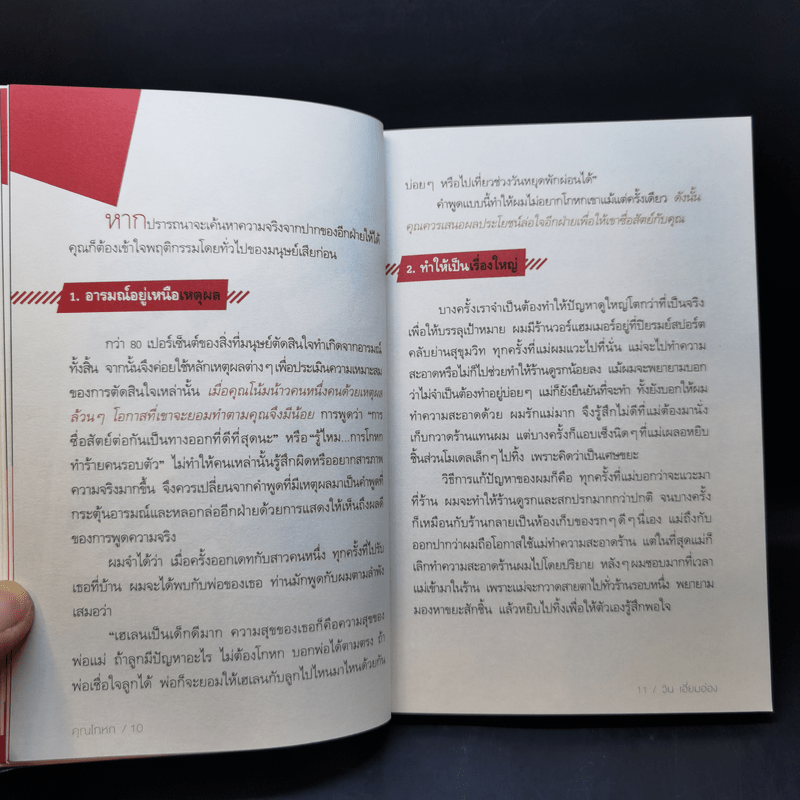 หากปรารถนาจะค้นหาความจริงจากปากของอีกฝ่ายให้ได้
คุณก็ต้องเข้าใจพฤติกรรมโดยทั่วไปของมนุษย์เสียก่อน
1. อารมณ์อยู่เหนือเหตุผล
กว่า 80 เปอร์เซ็นต์ของสิ่งที่มนุษย์ตัดสินใจทำเกิดจากอารมณ์
ทั้งสิ้น จากนั้นจึงค่อยใช้หลักเหตุผลต่างๆ เพื่อประเมินความเหมาะสม
ของการตัดสินใจเหล่านั้น เมื่อคุณโน้มน้าวคนหนึ่งคนด้วยเหตุผล
ล้วนๆ โอกาสที่เขาจะยอมทำตามคุณจึงมีน้อย การพูดว่า "การ
ซื่อสัตย์ต่อกันเป็นทางออกที่ดีที่สุดนะ" หรือ "รู้ไหม...การโกหก
ทำร้ายคนรอบตัว" ไม่ทำให้คนเหล่านั้นรู้สึกผิดหรืออยากสารภาพ
ความจริงมากขึ้น จึงควรเปลี่ยนจากคำพูดที่มีเหตุผลมาเป็นคำพูดที่
กระตุ้นอารมณ์และหลอกล่ออีกฝ่ายด้วยการแสดงให้เห็นถึงผลดี
ของการพูดความจริง
ผมจำได้ว่า เมื่อครั้งออกเดทกับสาวคนหนึ่ง ทุกครั้งที่ไปรับ
เธอที่บ้าน ผมจะได้พบกับพ่อของเธอ ท่านมักพูดกับผมตามลำพัง
เสมอว่า
"เฮเลนเป็นเด็กดีมาก ความสุขของเธอก็คือความสุขของ
พ่อแม่ ถ้าลูกมีปัญหาอะไร ไม่ต้องโกหก บอกพ่อได้ตามตรง ถ้า
พ่อเชื่อใจลูกได้ พ่อก็จะยอมให้เฮเลนกับลูกไปไหนมาไหนด้วยกัน
คุณโกหก / 10
บ่อยๆ หรือไปเที่ยวช่วงวันหยุดพักผ่อนได้"
คำพูดแบบนี้ทำให้ผมไม่อยากโกหกเขาแม้แต่ครั้งเดียว ดังนั้น
คุณควรเสนอผลประโยชน์ล่อใจอีกฝ่ายเพื่อให้เขาซื่อสัตย์กับคุณ
2. ทำให้เป็นเรื่องใหญ่
บางครั้งเราจำเป็นต้องทำให้ปัญหาดูใหญ่โตกว่าที่เป็นจริง
เพื่อให้บรรลุเป้าหมาย ผมมีร้านวอร์แฮมเมอร์อยู่ที่ปิยรมย์สปอร์ต
คลับย่านสุขุมวิท ทุกครั้งที่แม่ผมแวะไปที่นั่น แม่จะไปทำความ
สะอาดหรือไม่ก็ไปช่วยทำให้ร้านดูรกน้อยลง แม้ผมจะพยายามบอก
ว่าไม่จำเป็นต้องทำอยู่บ่อยๆ แม่ก็ยังยืนยันที่จะทำ ทั้งยังบอกให้ผม
ทำความสะอาดด้วย ผมรักแม่มาก จึงรู้สึกไม่ดีที่แม่ต้องมานั่ง
เก็บกวาดร้านแทนผม แต่บางครั้งก็แอบเซ็งนิดๆ ที่แม่เผลอหยิบ
ชิ้นส่วนโมเดลเล็กๆ ไปทิ้ง เพราะคิดว่าเป็นเศษขยะ
วิธีการแก้ปัญหาของผมก็คือ ทุกครั้งที่แม่บอกว่าจะแวะมา
ที่ร้าน ผมจะทำให้ร้านดูรกและสกปรกมากกว่าปกติ จนบางครั้ง
ก็เหมือนกับร้านกลายเป็นห้องเก็บของรกๆ ดีๆ นี่เอง แม่ถึงกับ
ออกปากว่าผมถือโอกาสใช้แม่ทำความสะอาดร้าน แต่ในที่สุดแม่ก็
เลิกทำความสะอาดร้านผมไปโดยปริยาย หลังๆ ผมชอบมากที่เวลา
แม่เข้ามาในร้าน เพราะแม่จะกวาดสายตาไปทั่วร้านรอบหนึ่ง พยายาม
มองหาขยะสักชิ้น แล้วหยิบไปทิ้งเพื่อให้ตัวเองรู้สึกพอใจ
11 / วิน เอี่ยมอ่อง